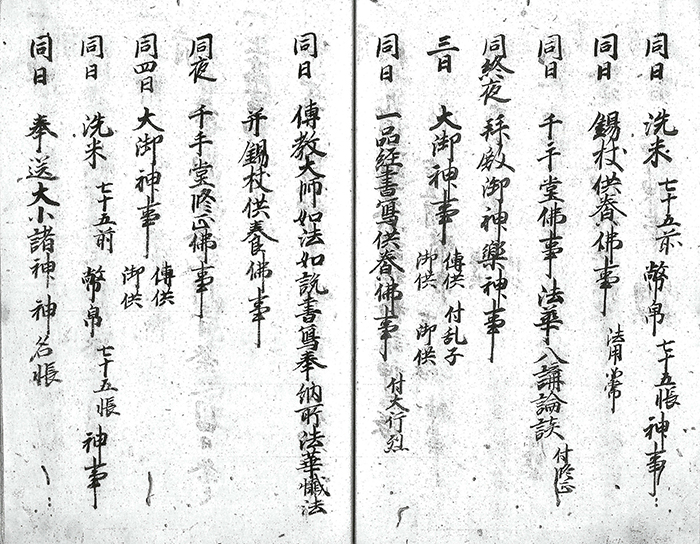 同日　洗米　七十五前　幣帛　七十五帳　神事
同日　錫杖供養佛事　法用常
同日　千手堂佛事　法華八講論談　付修正
同終夜　拜殿御神樂神事
三日　大御神事　傳供　付乱子
御供　御供
同日　一品経書寫供養佛事　付大行烈
同日　傳教大師如法如説書寫奉納所法華懺法
并錫杖供養佛事
同夜　千手堂修正佛事
同四日　大御神事　傳供
御供
同日　洗米　七十五前　幣帛　七十五帳　神事
同日　奉送大小諸神　神名帳